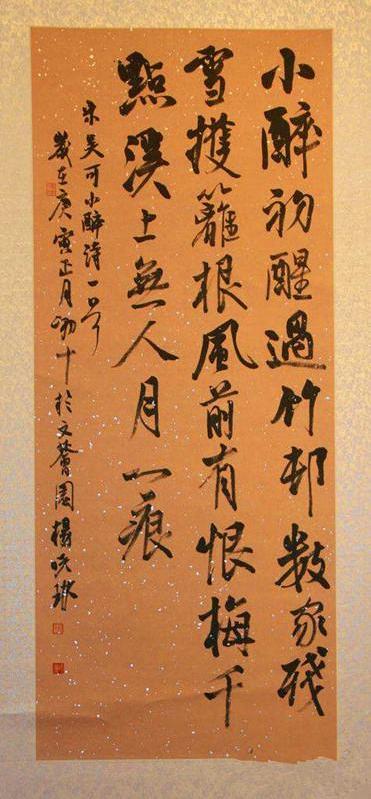 小醉初醒過竹邨數家殘
雪擁籬根風前有恨梅千
點溪上無人月一痕
宋吳可小醉詩一首
歲在庚寅正月初十於文馨園楊